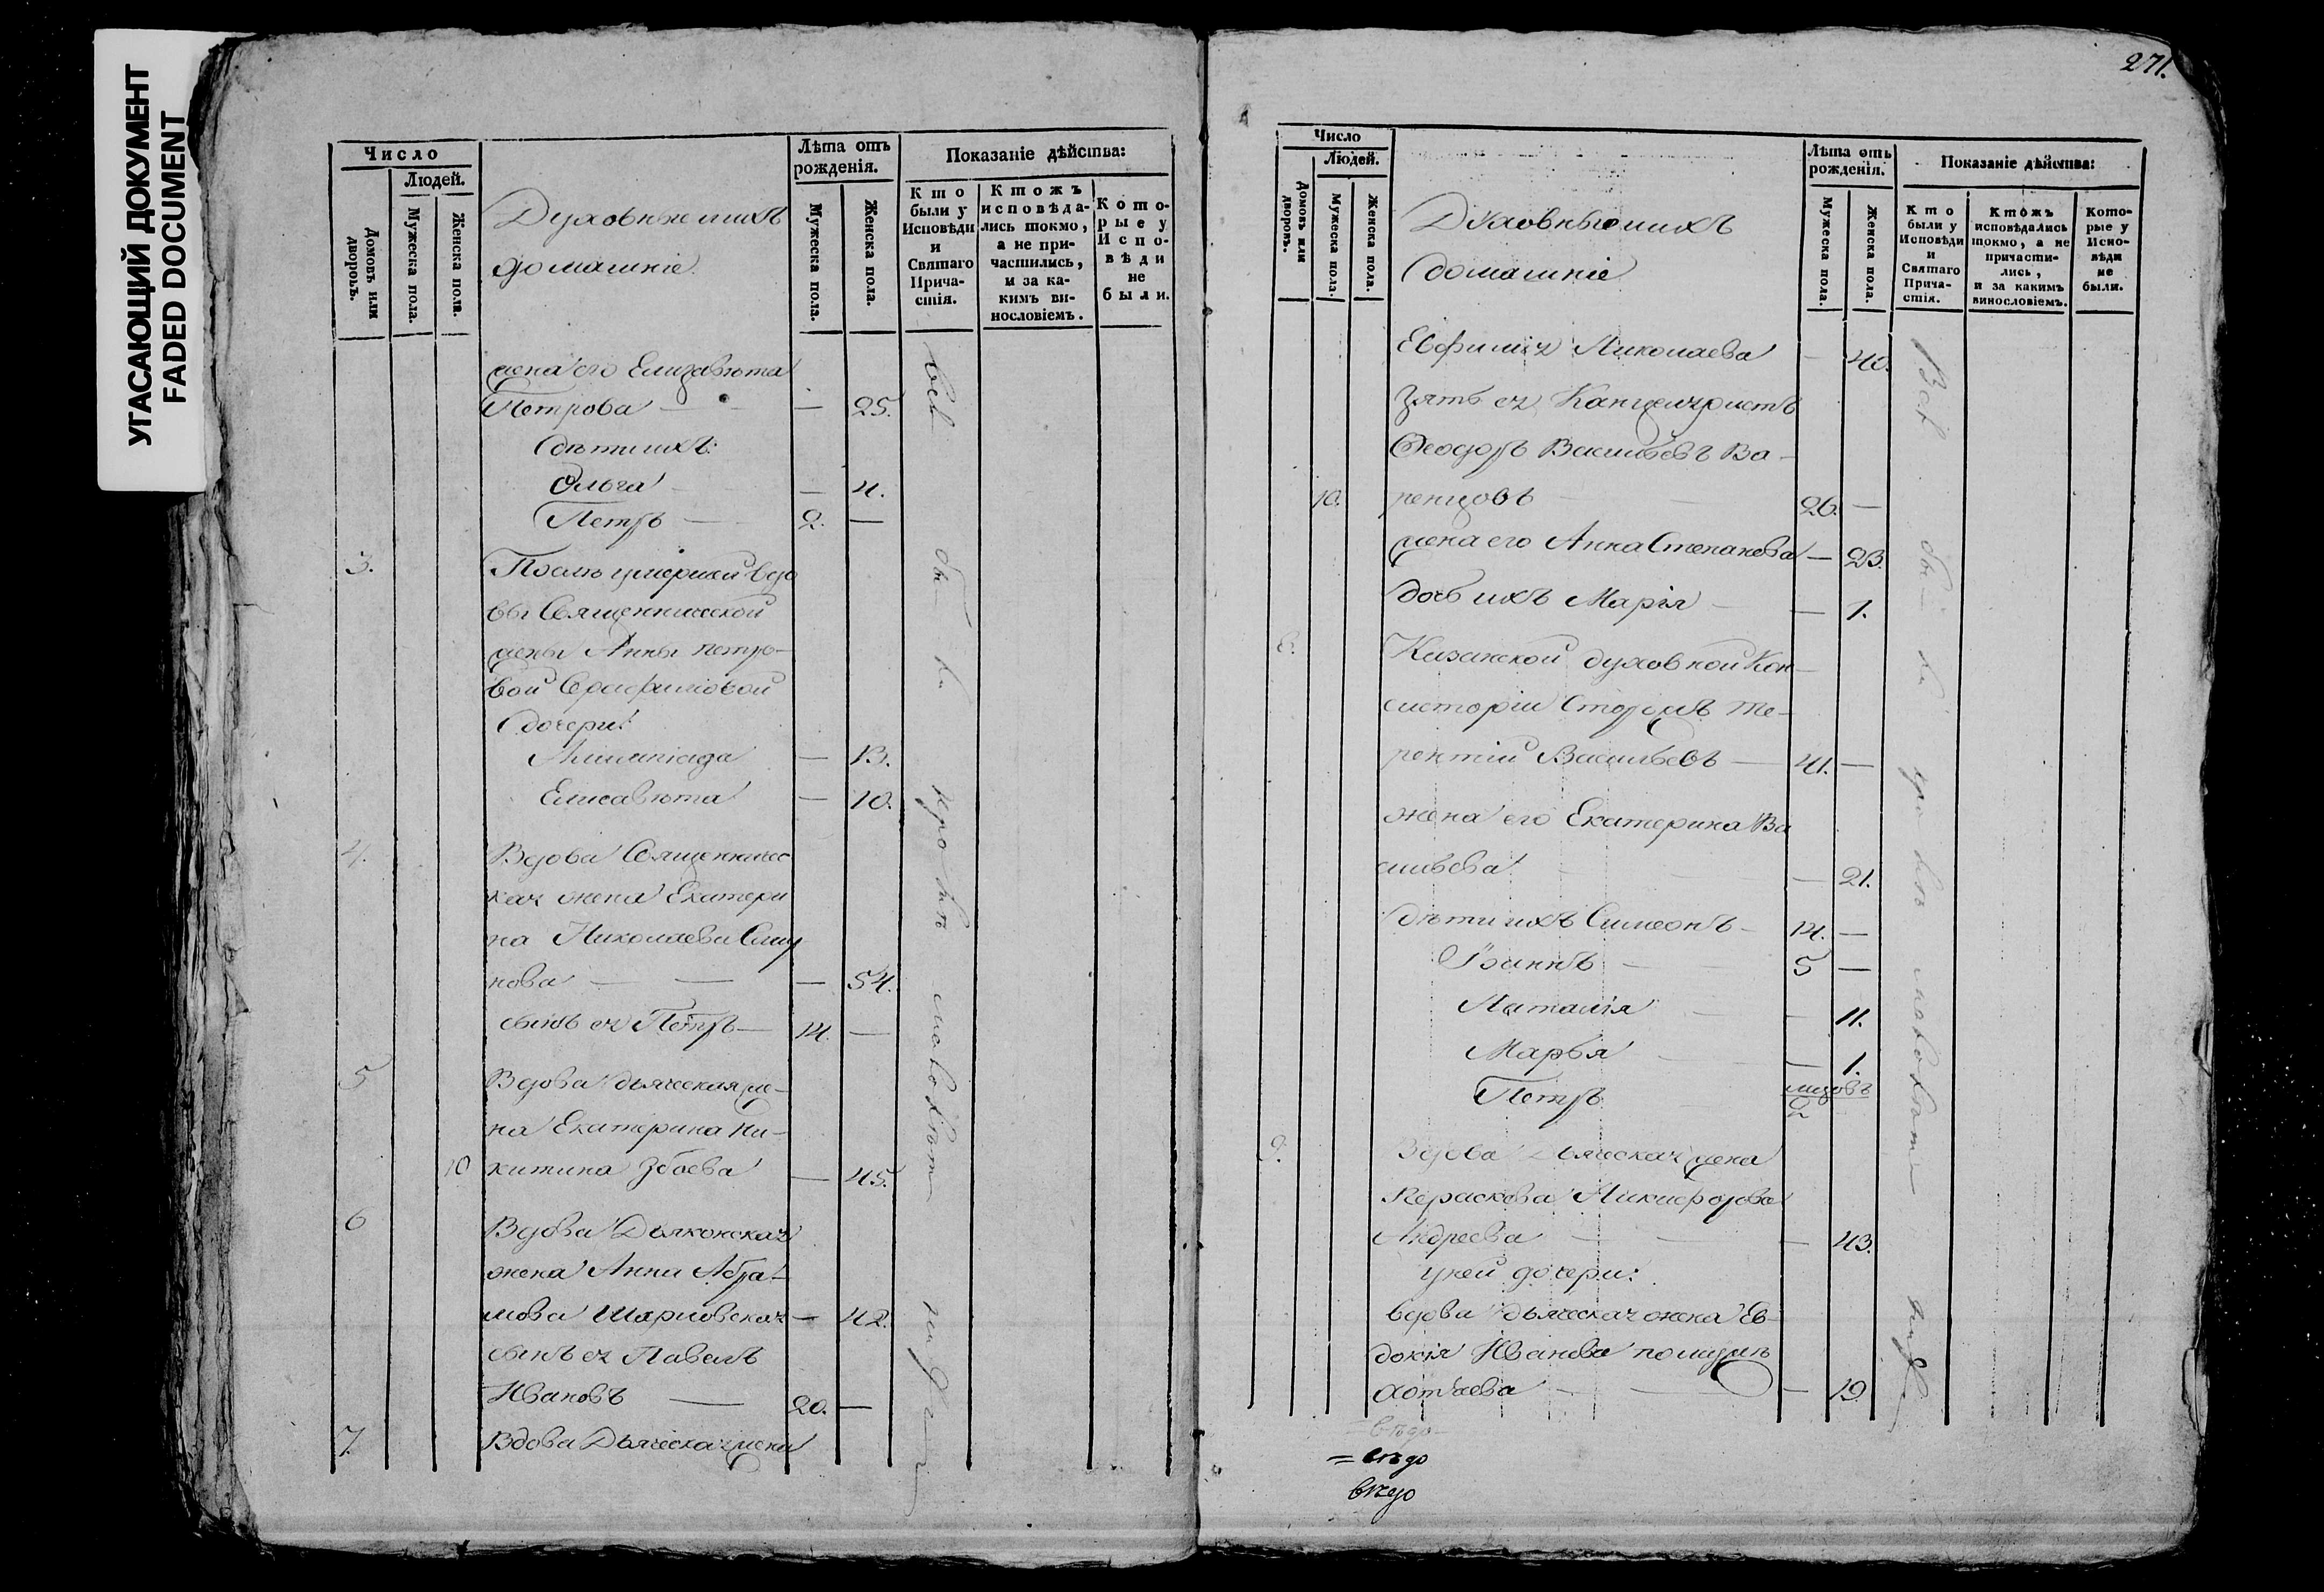 УГАСАЮЩИЙ ДОКУМЕНТ
FADED DOCUMENT
Число
Людей.
Домовъ или дворовъ.
Мужеска пола.
Женска пола.
Духовные и ихъ
домашніе
Лѣта отъ
рожденія.
Мужеска пола.
Женска пола.
Показаніе дѣйства:
Кто
были у
Исповѣди
и
Святаго
Прича-
стія.
Ктожъ
исповѣда-
лись токмо,
а не при-
частились,
и за ка-
кимъ ви-
нословіемъ.
Кото-
рые у
Испо-
вѣди
не
были.
жена его Елизавѣта
Петрова — — 25.
дѣти ихъ:
Ольга — 4.
Петръ — 2. —
3.
вы Священнической
жены Анны Петро-
вой Серафимовой
дочери:
Алимпіада — 13.
Елисавѣта — 10.
4. Вдова Священничес
кая жена Екатери
на Николаева
нова — — — 54.
сынъ ея Петръ — 14. —
5 Вдова дьяческая же-
на Екатерина Ни-
10 китина Збоева — 45.
6 Вдова Дьяконская
жена Анна Абра-
мова — 42.
сынъ ея Павелъ
Ивановъ — 20. —
7. Вдова Дьяческая жена
271.
Число
Людей.
Домовъ или дворовъ.
Мужеска пола.
Женска пола.
Духовные и ихъ
домашніе
Лѣта отъ
рожденія.
Мужеска пола.
Женска пола.
Показаніе дѣйства:
Кто
были у
Исповѣди
и
Святаго
Прича-
стія.
Ктожъ
исповѣдались
токмо, а не
причасти-
лись,
и за какимъ
винословіемъ.
Кото-
рые у
Испо-
вѣди
не
были.
Евфимія Николаева — 40.
Зять ея Канцеляристъ
Ѳеодоръ Васильевъ Ва-
10. ренцовъ 26. —
жена его Анна Степанова — 23.
дочь ихъ Марія — 1.
8. Казанской духовной Кон-
систоріи Сторожъ Те-
рентій Васильевъ — 41. —
жена его Екатерина Ва
сильева — 21.
дѣти ихъ Симеонъ — 14. —
Іоаннъ — 5 —
Наталія — 11.
Марья — 1.
Петръ 2
9. Вдова Дьяческая жена
Параскева Никифорова
Андреева — 43.
у ней дочери:
вдова дьяческая жена Ев-
докія Иванова по мужѣ
— 19